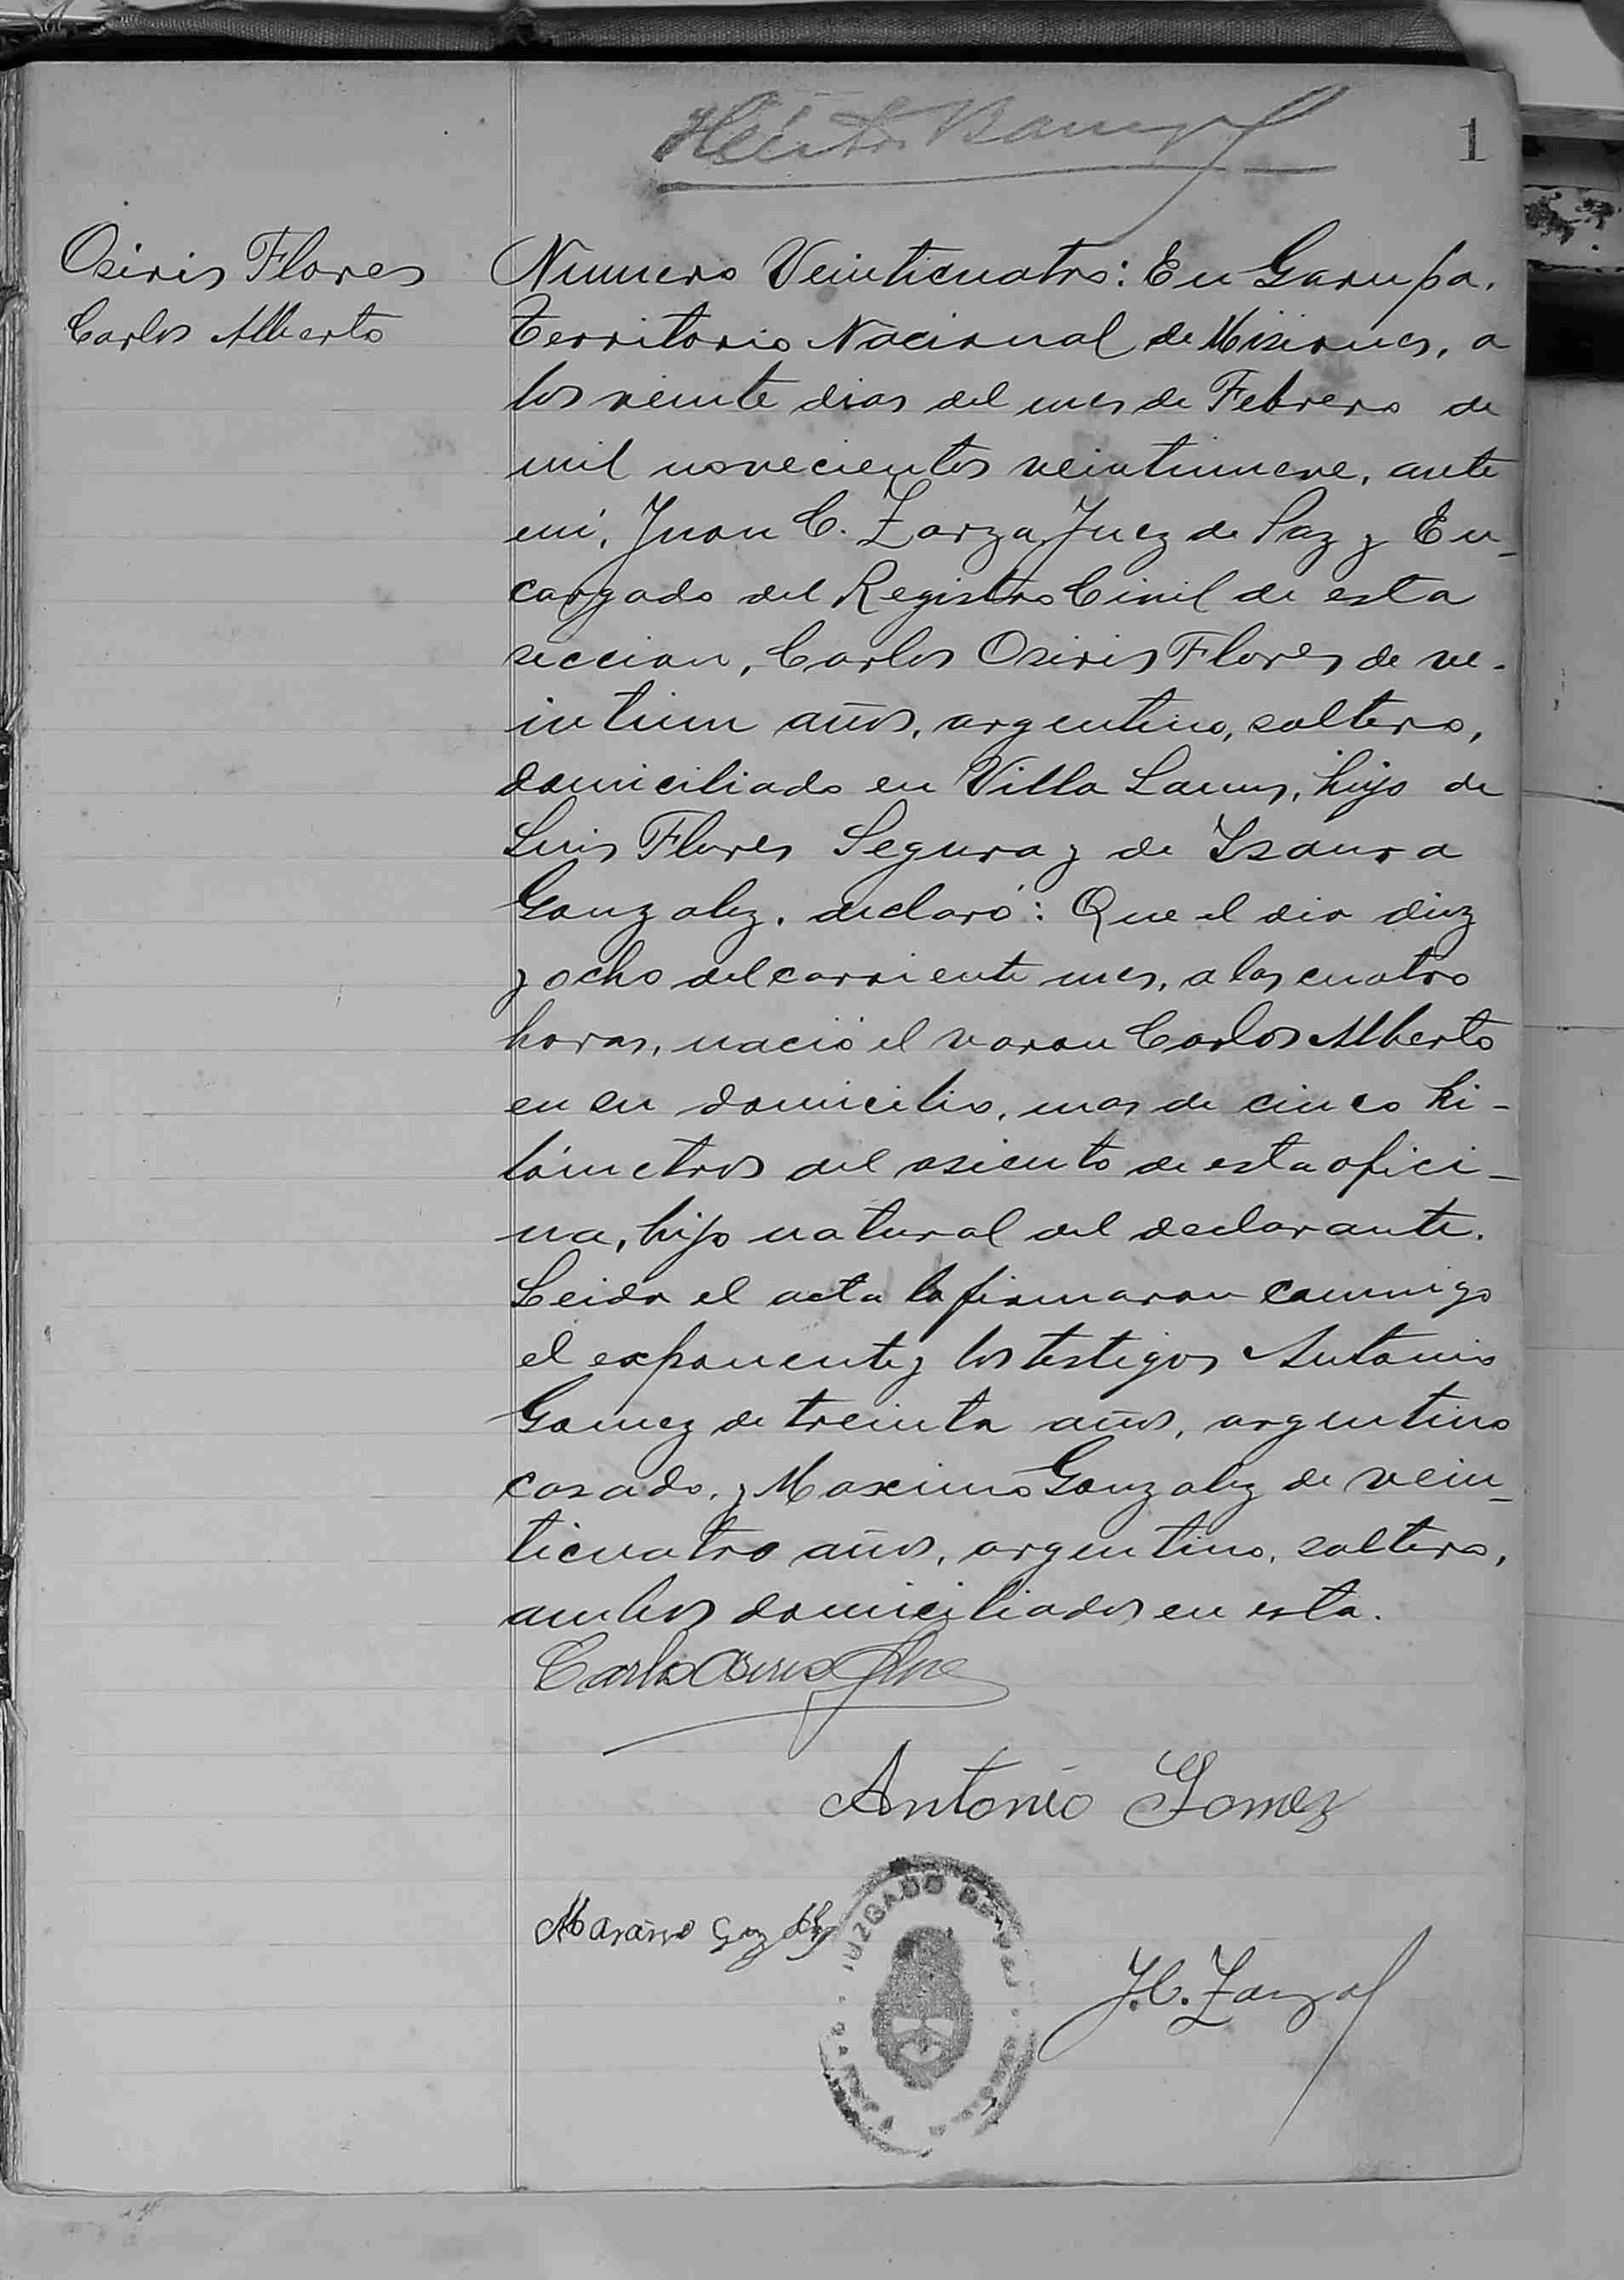 1
Osiris Flores
Carlos Alberto
Numero Veinticuatro: En Garupa,
Territorio Nacional de Misiones, a
los veinte dias del mes de Febrero de
mil novecientos veintinueve, ante
mi, Juan C. Zarza, Juez de Paz y En-
cargado del Registro Civil de esta
seccion, Carlos Osiris Flores de ve-
intiun años, argentino, soltero,
domiciliado en Villa Lanus, hijo de
Luis Flores Segura y de Isaura
Gonzalez, declaró: Que el dia diez
y ocho del corriente mes, a las cuatro
horas, nació el varon Carlos Alberto
en su domicilio, mas de cinco ki-
lómetros del asiento de esta ofici-
na, hijo natural del declarante.
Leida el acta la firmaron conmigo
el exponente y los testigos Antonio
Gomez de treinta años, argentino
casado, y Maximo Gonzalez de vein-
ticuatro años, argentino, soltero,
ambos domiciliados en esta.
Carlos Osiris Flores
Antonio Gomez
JUZGADO DE PAZ
J.C. Zarza